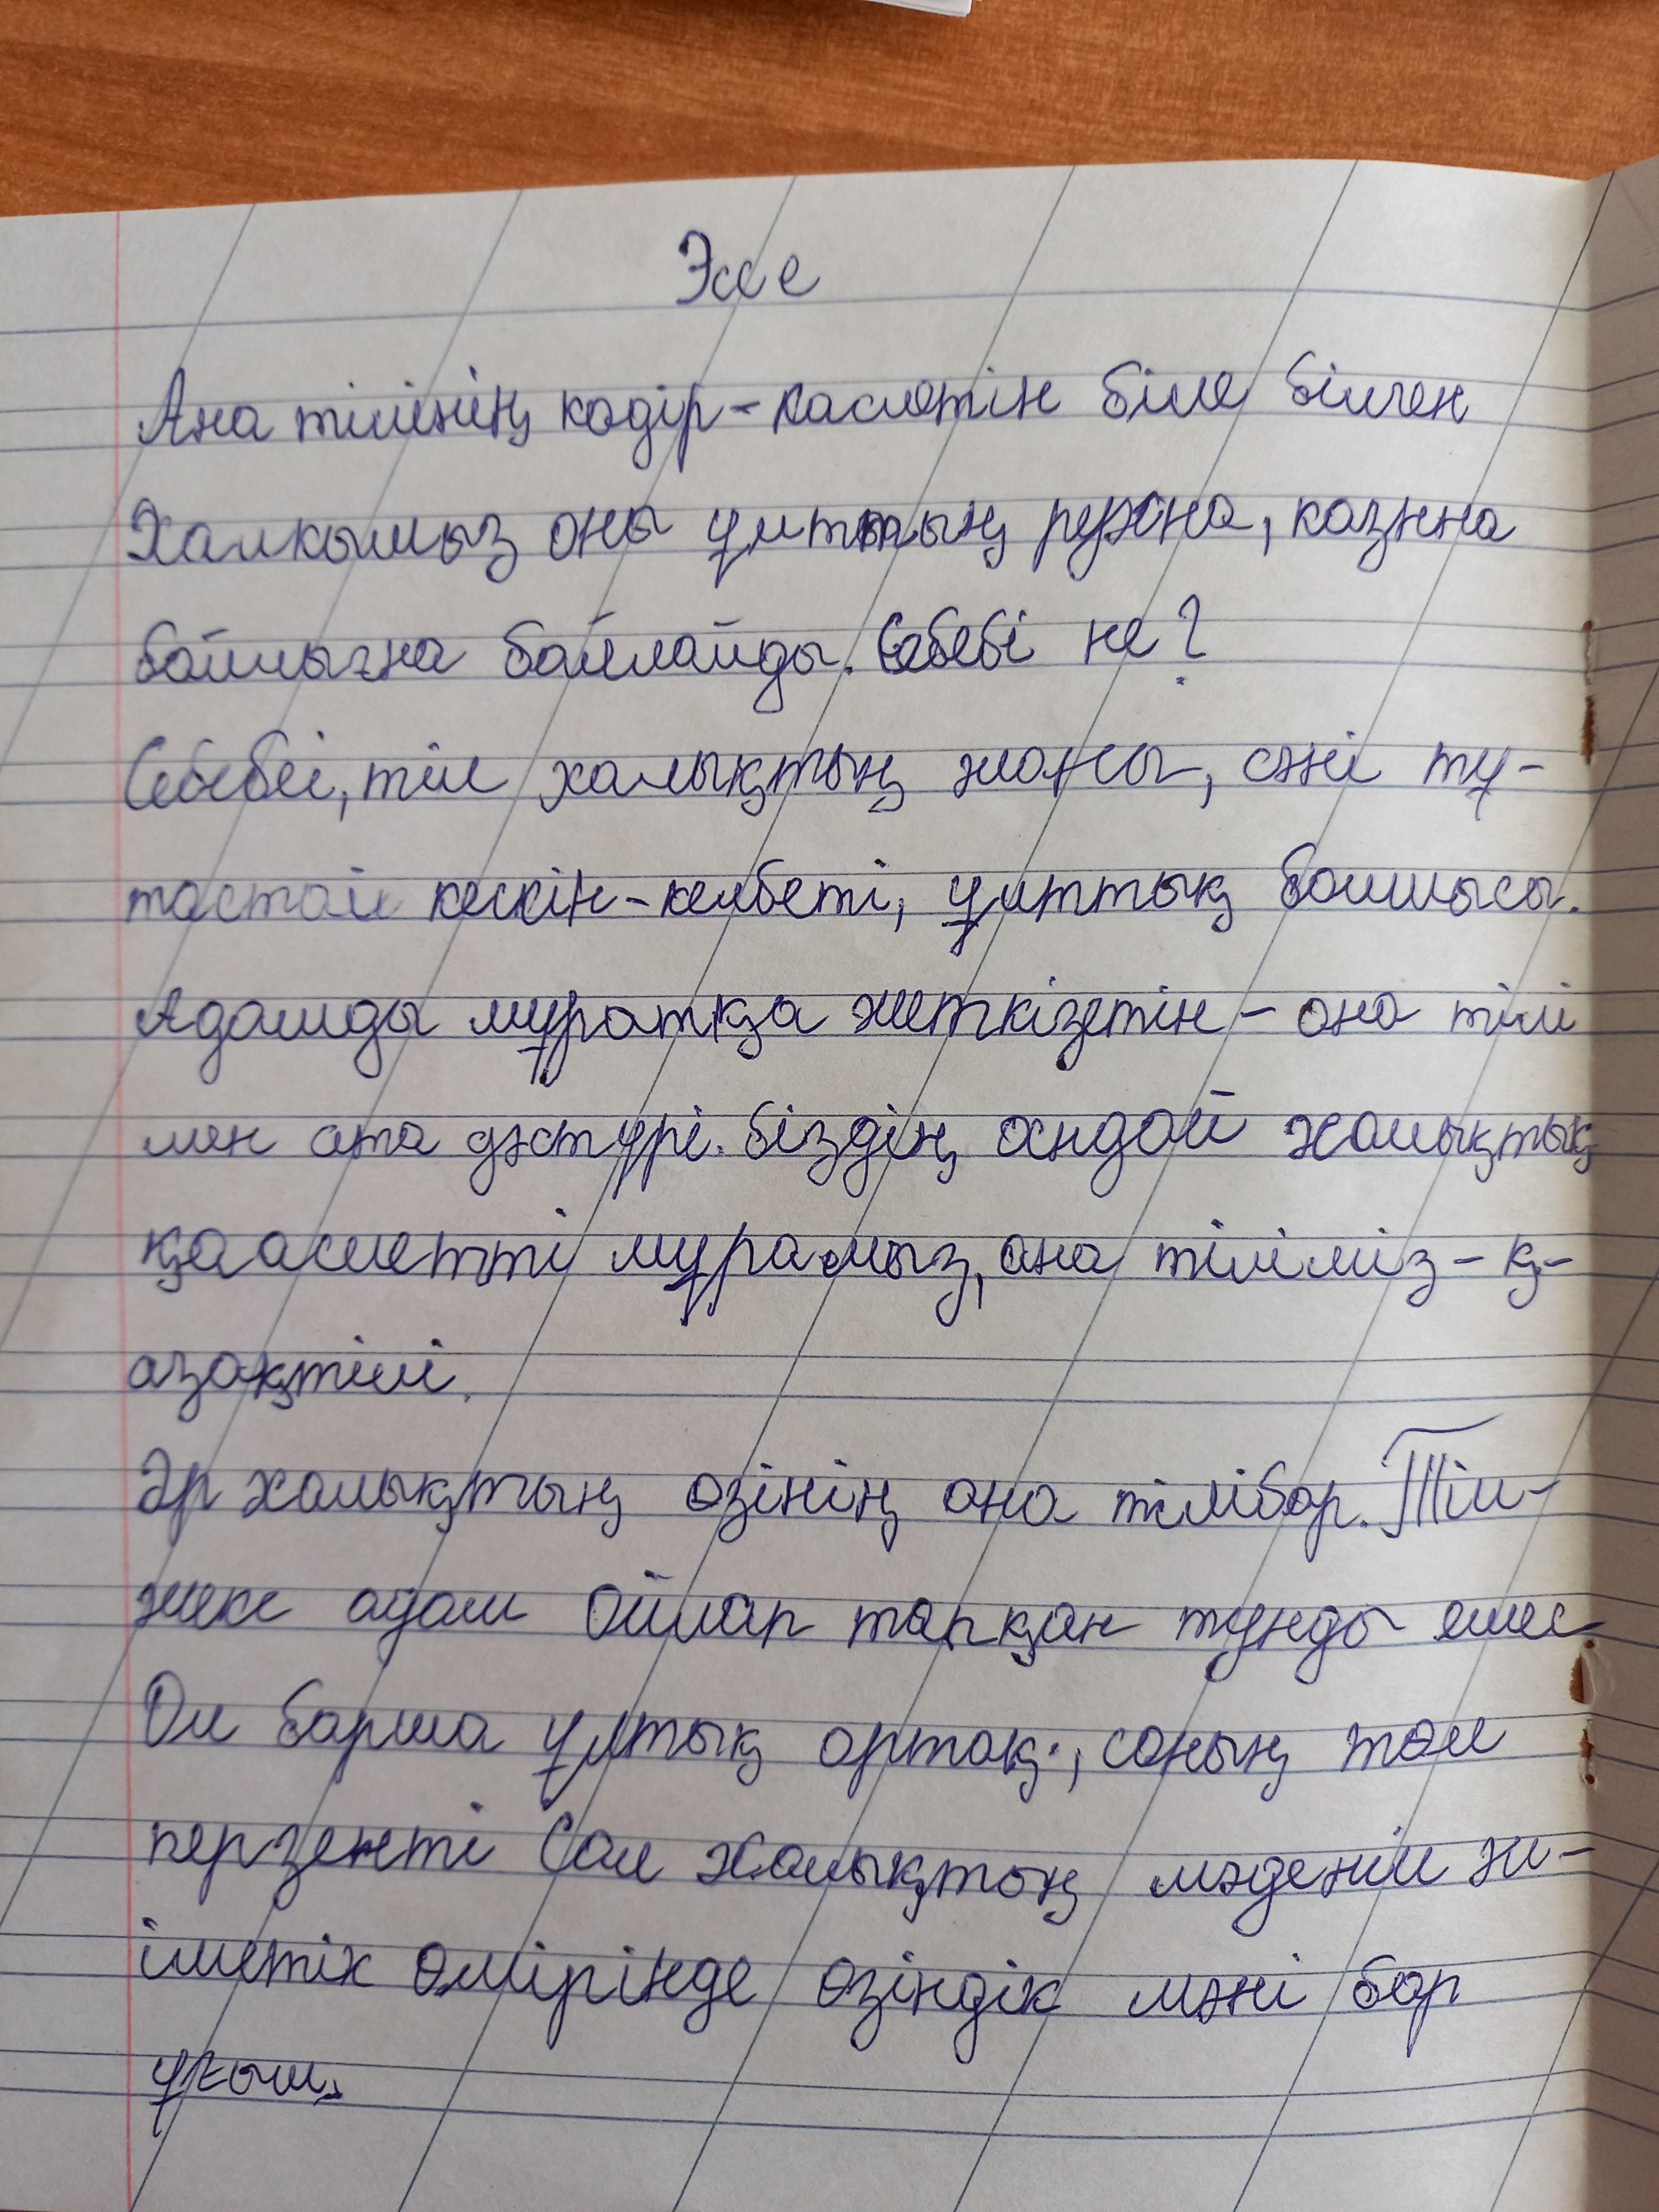 Эссе
Ана тілінің кадір-касиетін біле білген
Халкымыз оны ұлттың рухна, казнна
байлығна байлайды. Себебі не?
Себебі, тіл халықтың жаны, сәні тұ-
тастай кескін-келбеті, ұлттық болмысы.
Адамды мұратқа жеткізетін - ана тілі
мен ата дәстүрі. біздің андай халықтық
қаасиетті мұрамыз, ана тіліміз - қ-
азақтілі.
Әр халықтың өзінің ана тілібар. Тіл-
жеке адам ойлап тапқан тунды емес
Ол барша ұлтық ортақ, соның төл
перзенті Сол Халықтың мәдений
өмірінде өзіндік мәні бар
ұғым.